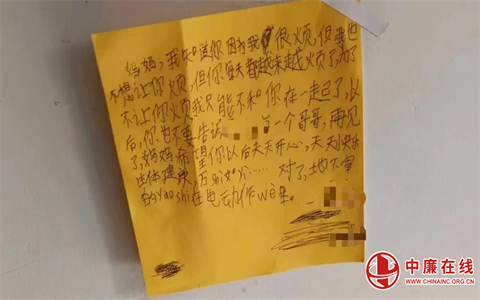 妈妈,我知道你因为我很烦,但我也
不想让你烦,但你每天都越来越烦了,为了
不让你烦我只能不和你在一起了,以
后,你也不要告诉 有一个哥哥,再见
了,妈妈希望你以后天天开心,天天快乐
身体健康,万shi如yi…… 对了,地下室
的yao shi在电动
中廉在线
WWW.CHINAINC.ORG.CN